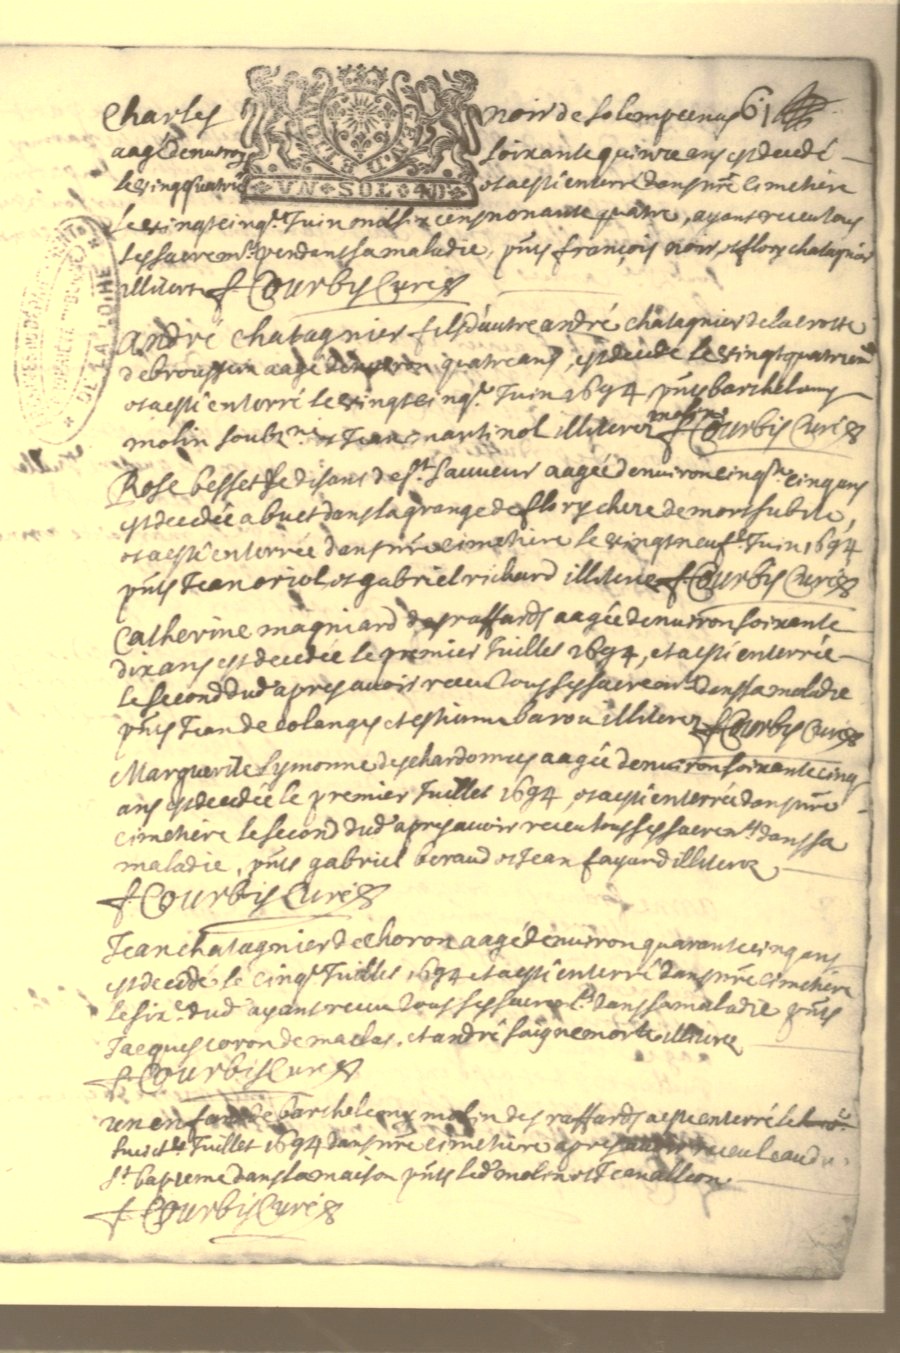 Charles noir de solempcenas 61
aagé denviron soixante quinze ans est decedé
le vingt quatrie UN SOL 4D et a esté enterré dans nre cimetière
le vingt cinqe Juin mil six cens nonante quatre, ayant receu tous
les sacremts pendant sa maladie, pnts françois noir et flory chatagnier
illiterez f Courbis Curé
André chatagnier fils d'autre andré chatagnier de la crotte
de broussin aagé denviron quatre ans, est decedé le vingt quatrieme
et a esté enterré le vingt cinqe Juin 1694 pnts barthelemy
molin soubzne et Jean martinol illiterez f Courbis Curé
Rose besset se disant de st sauveur aagée denviron cinqte cinq ans
est decedée a buet dans la grange de flory chere de mort subite,
et a esté enterrée dans nre cimetiere le vingt neufe Juin 1694
pnts Jean oriol et gabriel richard illiterez f Courbis Curé
Catherine magniard des raffards aagée denviron soixante
dix ans est decedée le premier Juillet 1694, et a esté enterrée
le second dud apres avoir receu tous ses sacremts dans sa maladie
pnts Jean de colanges et estienne barou illiterez f Courbis Curé
Marguerite symonne des chardonnes aagée denviron soixante cinq
ans est decedée le premier Juillet 1694, et a esté enterrée dans nre
cimetière le second dud apres avoir receu tous ses sacremts dans sa
maladie, pnts gabriel beraud et Jean fayard illiterez
f Courbis Curé
Jean chatagnier de choron aagé denviron quarante cinq ans
est decedé le cinqe Juillet 1694 et a esté enterré dans nre cimetière
le sixe dud ayant receu tous ses sacremts dans sa maladie pnts
Jacques coron de maclas, et andré saignemorte illiterez
f Courbis Curé
un enfant de barthelemy molin des raffards a esté enterré le
huict Juillet 1694 dans nre cimetière apres avoir receu leau du
st bapteme dans la maison pnts led molin et Jean alleon
f Courbis Curé
DE LA LOIRE